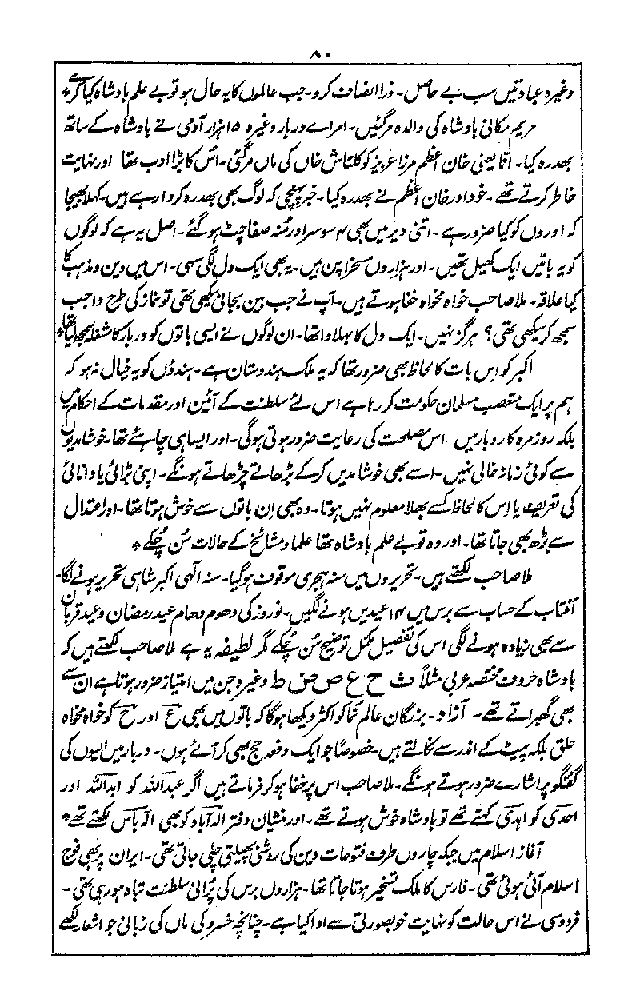 ۸۰
وغیرہ عبادتیں سب بے حاصل۔ ذرا انصاف کرو۔ جب عالموں کا یہ حال ہو تو بے علم بادشاہ کیا کرے
مریم مکانی بادشاہ کی والدہ مرگئیں۔ امراے دربار وغیرہ ۱۵ ہزار آدمی نے بادشاہ کے ساتھ
بھدرہ کیا۔ انّا یعنی خان اعظم مرزا عزیز کوکلتاش خاں کی ماں مرگئی۔ اُس کا بڑا ادب تھا اور نہایت
خاطر کرتے تھے۔ خود اور خان اعظم نے بھدرہ کیا۔ خبر پہنچی کہ لوگ بھی بھدرہ کروا رہے ہیں۔ کہلا بھیجا
کہ اوروں کو کیا ضرور ہے۔ اتنی دیر میں بھی ۴ سو سر اور منہ صفاچٹ ہو گئے۔ اصل یہ ہے کہ لوگوں
کو یہ باتیں ایک کھیل تھیں۔ اور ہزاروں مسخراپن ہیں۔ یہ بھی ایک دل لگی سہی۔ اس میں دین و مذہب کا
کیا علاقہ۔ ملا صاحب خواہ مخواہ خفا ہوتے ہیں۔ آپ نے جب بین بجانی سیکھی تھی تو نماز کی طرح واجب
سمجھ کر سیکھی تھی؟ ہرگز نہیں۔ ایک دل کا بہلاوا تھا۔ ان لوگوں نے ایسی باتوں کو دربار کا مشغلہ سمجھ لیا تھا
اکبر کو اس بات کا لحاظ بھی ضرور تھا کہ یہ ملک ہندوستان ہے۔ ہندوؤں کو یہ خیال نہ ہو کہ
ہم پر ایک متعصب مسلمان حکومت کر رہا ہے اس لئے سلطنت کے آئین اور مقدمات کے احکام میں
بلکہ روزمرہ کاروبار میں اس مصلحت کی رعایت ضرور ہوتی ہوگی۔ اور ایسا ہی چاہئے تھا۔ خوشامدیوں
سے کوئی زمانہ خالی نہیں۔ اسے بھی خوشامدیں کر کے بڑھاتے چڑھاتے ہونگے۔ اپنی بڑائی یا دانائی
کی تعریف یا اس کا لحاظ کسے بھلا معلوم نہیں ہوتا۔ وہ بھی ان باتوں سے خوش ہوتا تھا۔ اور اعتدال
سے بڑھ بھی جاتا تھا۔ اور وہ تو بے علم بادشاہ تھا علما و مشائخ کے حالات سُن چکے *
ملا صاحب لکھتے ہیں۔ تحریروں میں سنہ ہجری موقوف ہو گیا۔ سنہ الٰہی اکبر شاہی تحریر ہونے لگا۔
آفتاب کے حساب سے برس میں ۱۴ عیدیں ہونے لگیں۔ نوروز کی دھوم دھام عید رمضان و عید قربان
سے بھی زیادہ ہونے لگی اس کی تفصیل مکمل توضیح سُن چکے مگر لطیفہ یہ ہے ملا صاحب لکھتے ہیں کہ
بادشاہ حروف مختصہ عربی مثلاً ث ح ع ص ض ط وغیرہ جن میں امتیاز ضرور ہوتا ہے ان سے
بھی گھبراتے تھے۔ آزاد۔ بزرگان عالم نما کو اکثر دیکھا ہوگا کہ باتوں میں بھی ع اور ح کو خواہ مخواہ
حلق بلکہ پیٹ کے اندر سے نکالتے ہیں۔ خصوصاً جو ایک دفعہ حج بھی کر آئے ہوں۔ دربار میں ایسوں کی
گفتگو پر اشارے ضرور ہوتے ہونگے۔ ملا صاحب اس پر خفا ہو کر فرماتے ہیں اگر عبداللہ کو ابداللہ اور
احدی کو اہدی کہتے تھے تو بادشاہ خوش ہوتے تھے۔ اور منشیان دفتر الہ آباد کو بھی الہ باس لکھتے تھے *
آغاز اسلام میں جبکہ چاروں طرف فتوحات دین کی روشنی پھیلتی چلی جاتی تھی۔ ایران پر بھی فوج
اسلام آئی ہوئی تھی۔ فارس کا ملک تسخیر ہوتا جاتا تھا۔ ہزاروں برس کی پرانی سلطنت تباہ ہو رہی تھی۔
فردوسی نے اس حالت کو نہایت خوبصورتی سے ادا کیا ہے۔ چنانچہ خسرو کی ماں کی زبانی جو اشعار لکھے